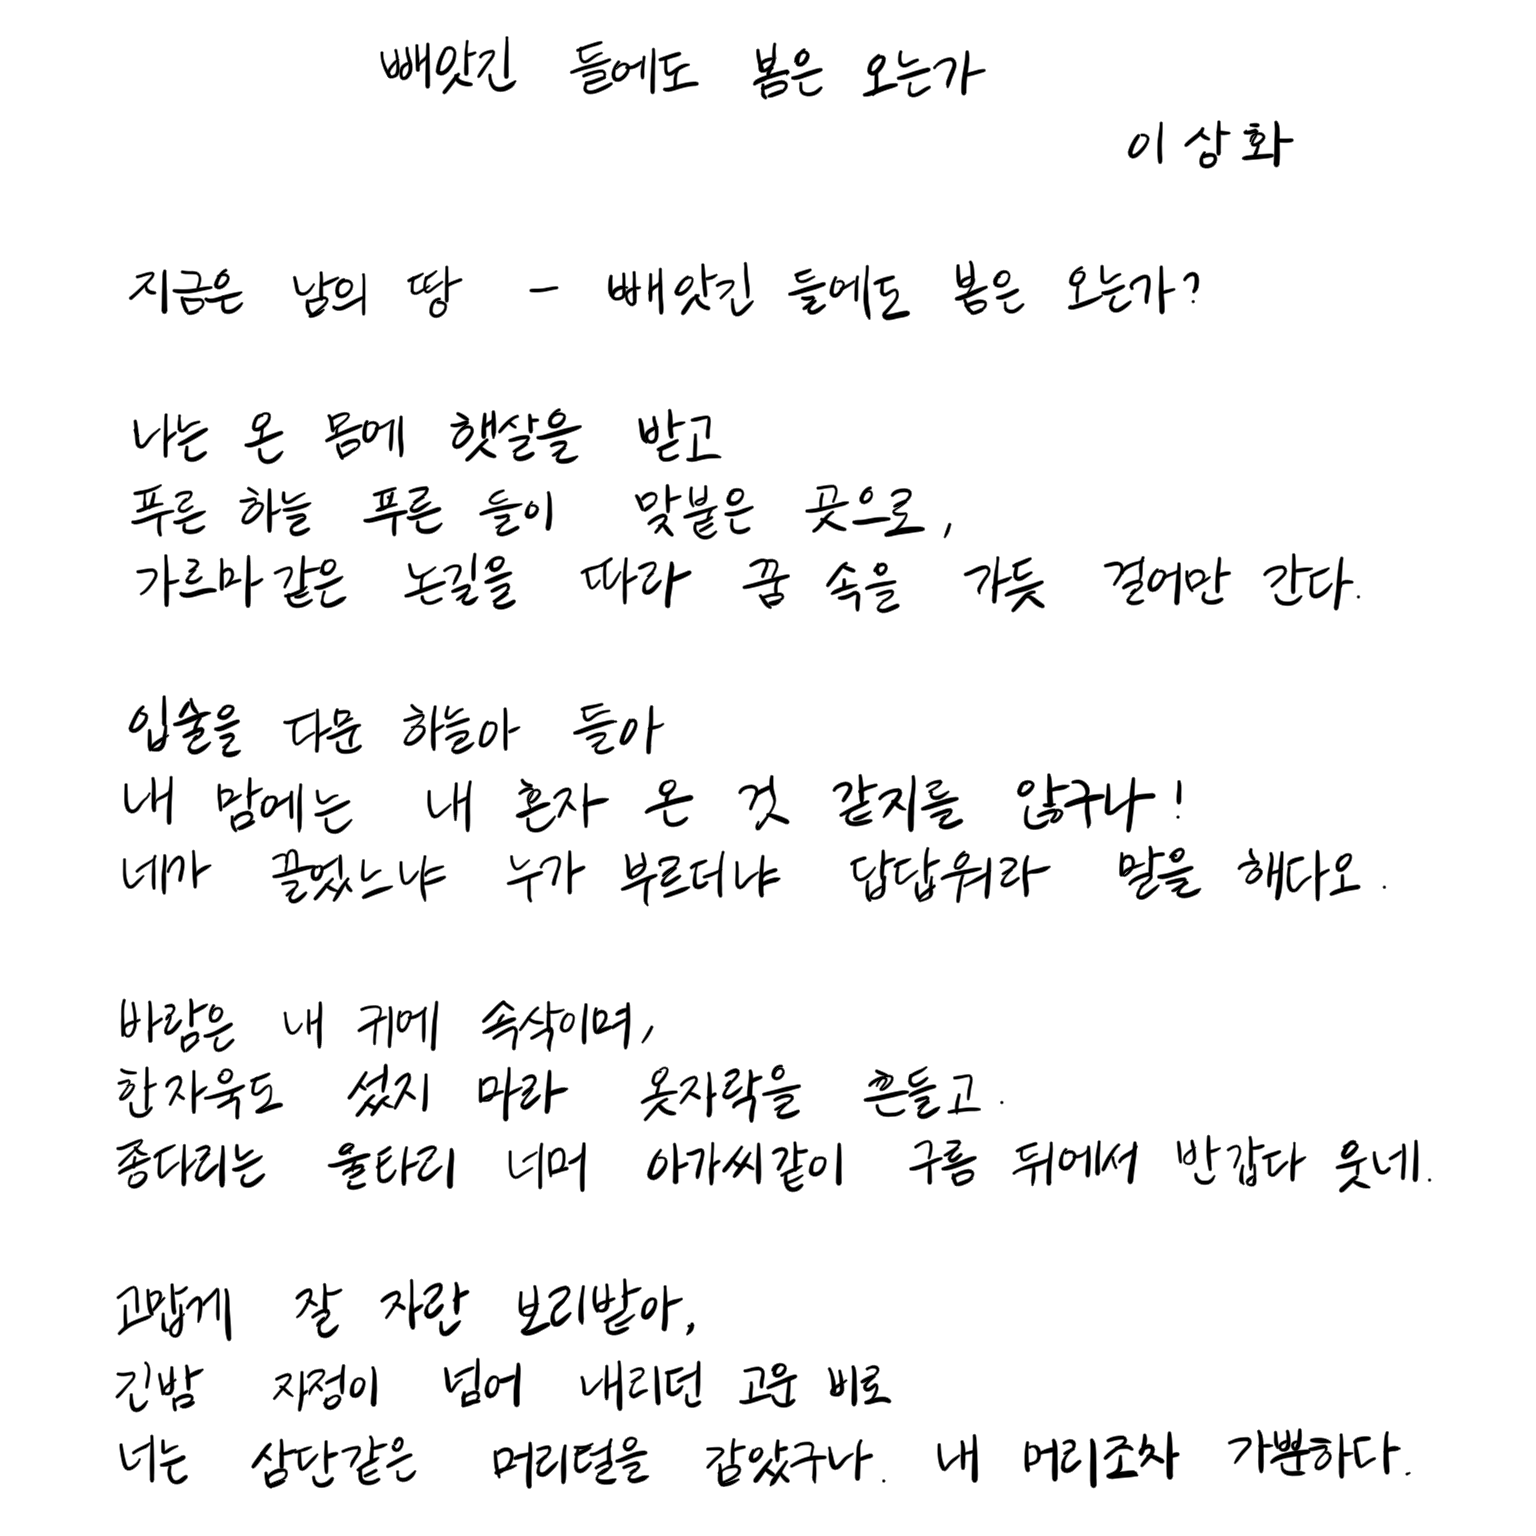 빼앗긴 들에도 봄은 오는가
이상화
지금은 남의 땅 - 빼앗긴 들에도 봄은 오는가?
나는 온 몸에 햇살을 받고
푸른 하늘 푸른 들이 맞붙은 곳으로,
가르마같은 논길을 따라 꿈 속을 가듯 걸어만 간다.
입술을 다문 하늘아 들아
내 맘에는 내 혼자 온 것 같지를 않구나!
네가 끌었느냐 누가 부르더냐 답답워라 말을 해다오.
바람은 내 귀에 속삭이며,
한자욱도 섰지 마라 옷자락을 흔들고.
종다리는 울타리 너머 아가씨같이 구름 뒤에서 반갑다 웃네.
고맙게 잘 자란 보리밭아,
긴밤 자정이 넘어 내리던 고운 비로
너는 삼단같은 머리털을 감았구나. 내 머리조차 가뿐하다.